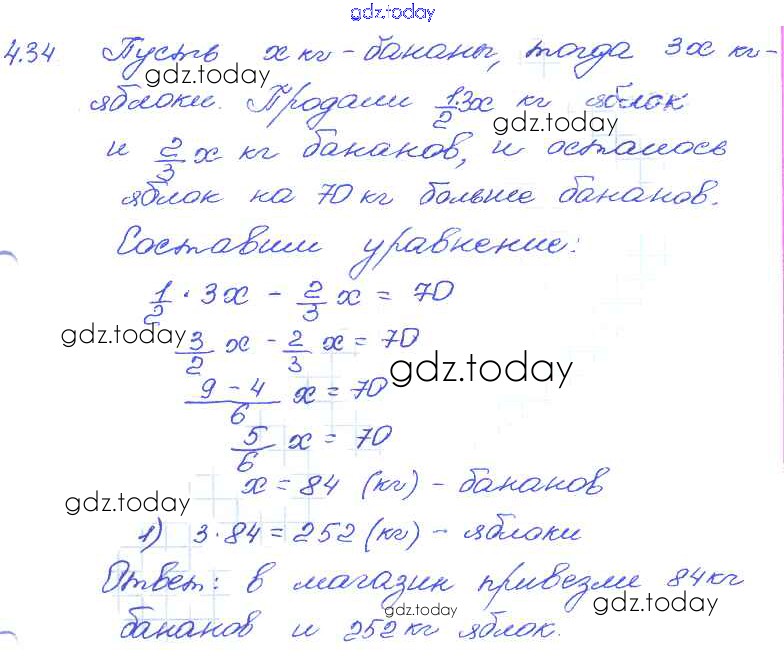 gdz.today
4.34 Пусть x кг - бананы, тогда 3x кг -
gdz.today
яблоки. Продали 1/2·3x кг яблок
gdz.today
и 2/3 x кг бананов, и осталось
яблок на 70 кг больше бананов.
Составим уравнение:
1/2 · 3x - 2/3 x = 70
gdz.today
3/2 x - 2/3 x = 70
gdz.today
(9 - 4)/6 x = 70
5/6 x = 70
x = 84 (кг) - бананов
gdz.today
1) 3·84 = 252 (кг) - яблоки
Ответ: в магазин привезли 84 кг
gdz.today
gdz.today
бананов и 252 кг яблок.